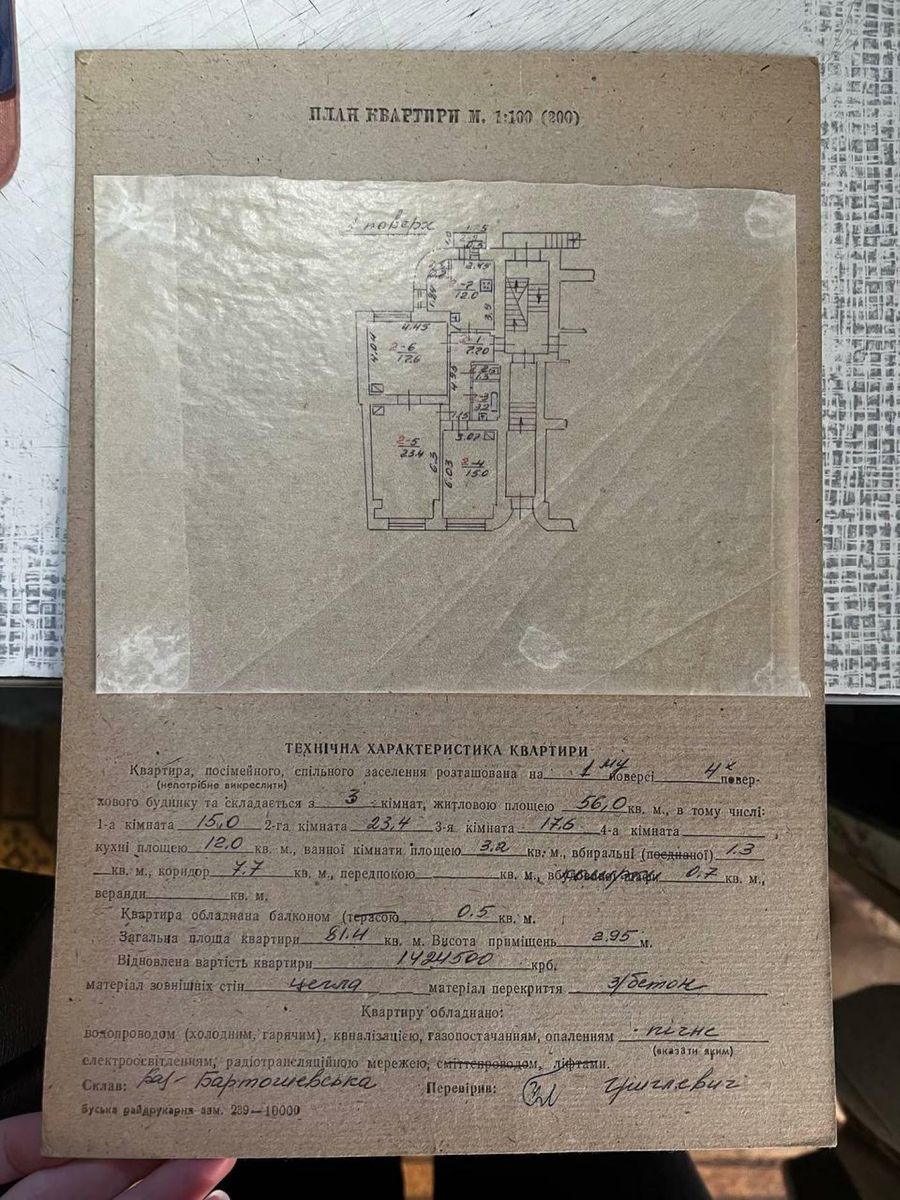 ПЛАН КВАРТИРИ М. 1:100 (200)
поверх
1.75
2.45
2-2
12.0
3.9
1.84
4.45
4.04
2-6
17.6
2-1
7.70
4.95
1.3
2-3
3.2
1.15
3.07
2-5
23.4
6.3
6.03
2-4
15.0
ТЕХНІЧНА ХАРАКТЕРИСТИКА КВАРТИРИ
Квартира, посімейного, спільного заселення розташована на 1му поверсі 4х повер-
(непотрібне викреслити)
хового будинку та складається з 3 кімнат, житловою площею 56,0 кв. м., в тому числі:
1-а кімната 15,0 2-га кімната 23,4 3-я кімната 17.6 4-а кімната
кухні площею 12.0 кв. м., ванної кімнати площею 3.2 кв. м., вбиральні (поєднаної) 1.3
кв. м., коридор 7.7 кв. м., передпокою кв. м., 0.7 кв. м.,
веранди кв. м.
Квартира обладнана балконом (терасою 0.5 кв. м.
Загальна площа квартири 81.4 кв. м. Висота приміщень 2.95 м.
Відновлена вартість квартири 1424500 крб.
матеріал зовнішніх стін цегла матеріал перекриття з/бетон
Квартиру обладнано:
водопроводом (холодним, гарячим), каналізацією, газопостачанням, опаленням пічне
(вказати яким)
електроосвітленням, радіотрансляційною мережею, сміттєпроводом, ліфтами.
Склав: Бартошевська Перевірив: Григлевич
Буська райдрукарня зам. 239—10000